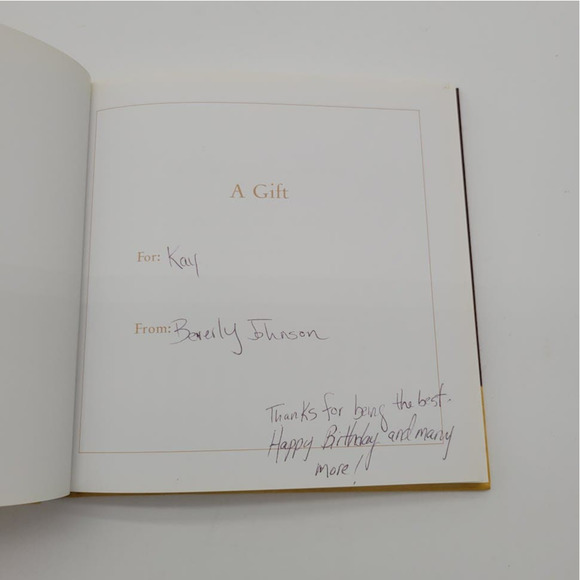 A Gift
For: Kay
From: Beverly Johnson
Thanks for being the best.
Happy Birthday and many
more!